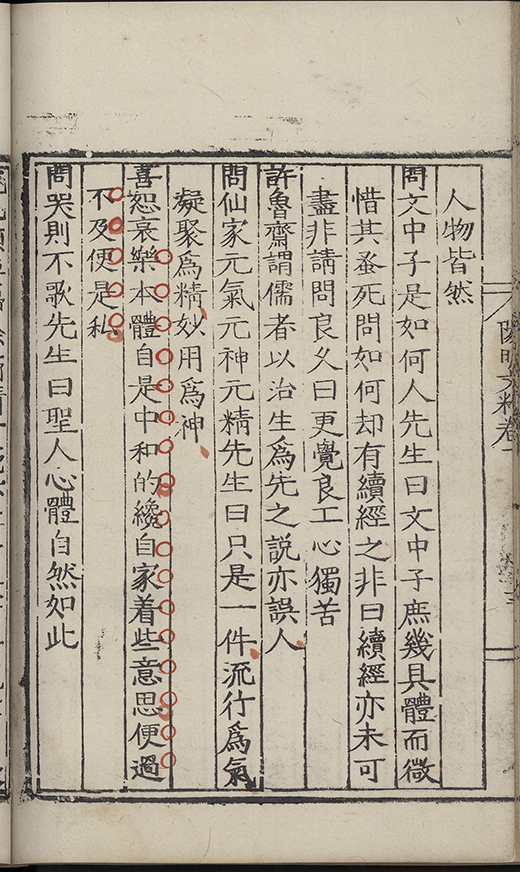 人物皆然
問文中子是如何人先生曰文中子庶幾具體而微
惜其蚤死問如何却有續經之非曰續經亦未可
盡非請問良乆曰更覺良工心獨苦
許魯齋謂儒者以治生爲先之説亦誤人
問仙家元氣元神元精先生曰只是一件流行爲氣
凝聚爲精妙用爲神
喜怒哀樂本體自是中和的纔自家着些意思便過
不及便是私
問哭則不歌先生曰聖人心體自然如此